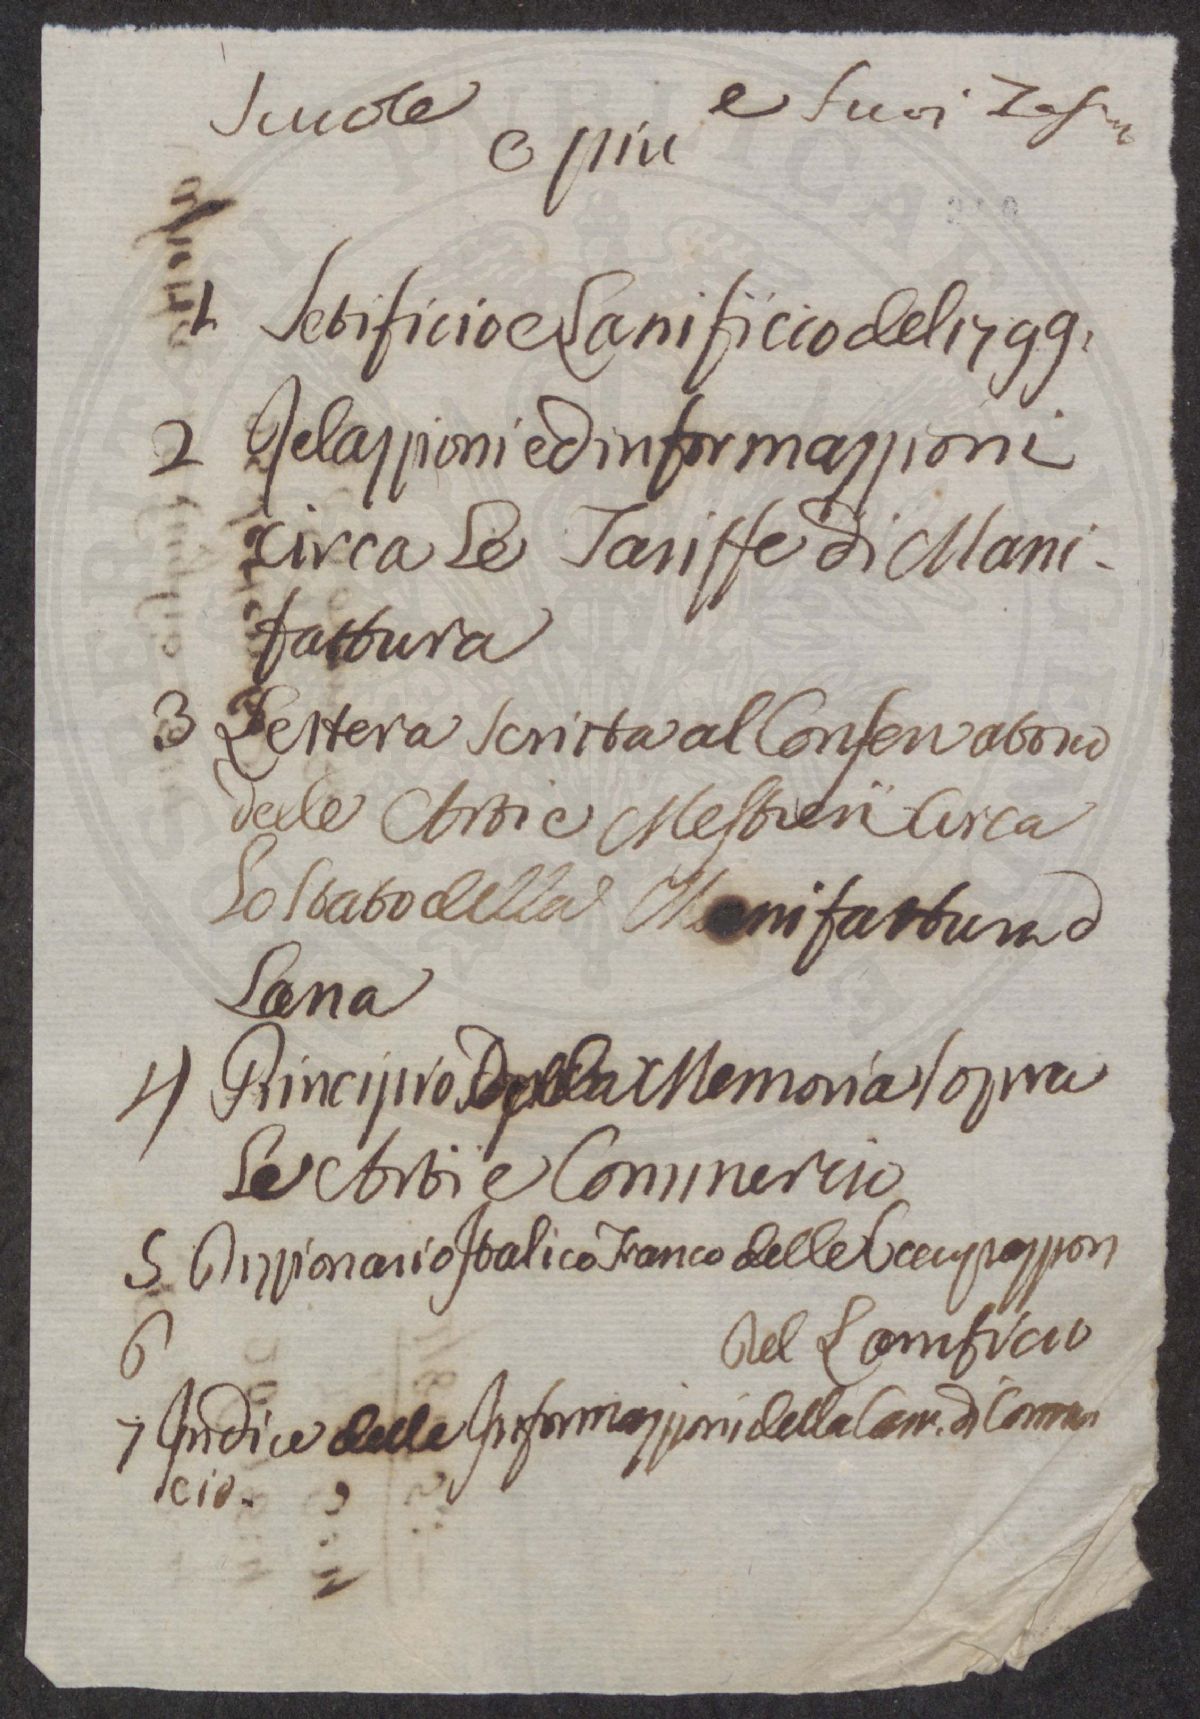 Scuole e suoi
e più
1 Setificio e Lanificio del 1799.
2 Relazzioni ed informazzioni
circa Le Tariffe di Mani-
fattura
3 Lettera scritta al Conservatorio
delle Arti e Mestieri Circa
Lo Stato della Manifattura d
Lana
4 Principio della Memoria sopra
Le Arti e Commercio
5 Dizzionario Italico Franco delle Occupazzion
6 del Lanificio
7 Indice delle Informazzioni della Cam. di Commer
cio.